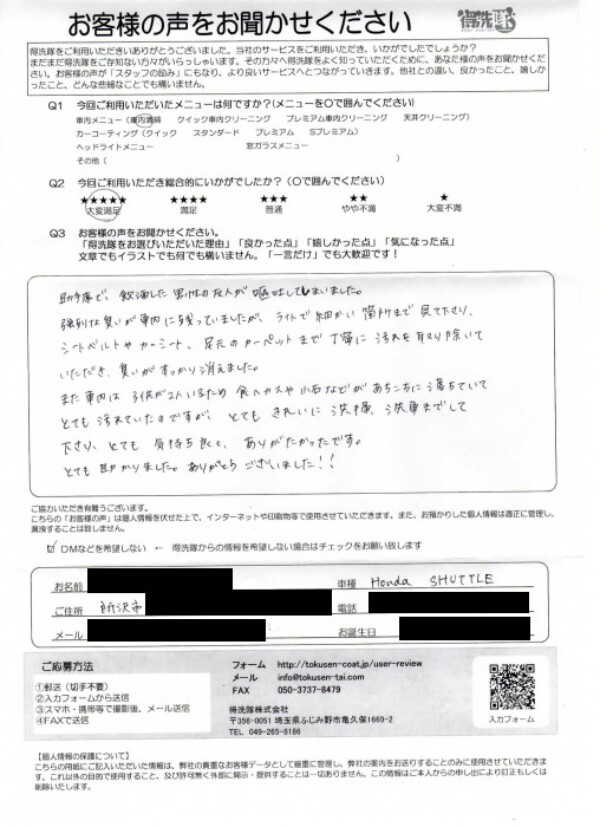 お客様の声をお聞かせください
得洗隊
得洗隊をご利用いただきいありがとうございました。当社のサービスをご利用いただき、いかがでしたでしょうか?
まだまだ得洗隊をご存知ない方々がいらっしゃいます。その方々へ得洗隊をよく知っていただくために、あなた様の声をお聞かせくださ
い。お客様の声が「スタッフの励み」にもなり、より良いサービスへとつながっていきます。他社との違い、良かったこと、嬉しか
ったこと、どんな些細なことでも構いません。
Q1 今回ご利用いただいたメニューは何ですか?(メニューを○で囲んでください)
車内メニュー(車内清掃 クイック車内クリーニング プレミアム車内クリーニング 天井クリーニング)
カーコーティング(クイック スタンダード プレミアム Sプレミアム)
ヘッドライトメニュー 窓ガラスメニュー
その他( )
Q2 今回ご利用いただき総合的にいかがでしたか?(○で囲んでください)
★★★★★ ★★★★ ★★★ ★★ ★
大変満足 満足 普通 やや不満 大変不満
Q3 お客様の声をお聞かせください。
「得洗隊をお選びいただいた理由」「良かった点」「嬉しかった点」「気になった点」
文章でもイラストでも何でも構いません。「一言だけ」でも大歓迎です!
助手席で、飲酒した男性の友人が嘔吐してしまいました。
強烈な臭いが車内に残っていましたが、ライトで細かい箇所まで見て下さり、
シートベルトやカーシート、足元のカーペットまで丁寧に汚れを取り除いて
いただき、臭いがすっかり消えました。
また車内は子供が2人いるため食べカスや小石などがあちこちに落ちていて
とても汚れていたのですが、とてもきれいに清掃、洗車までして
下さり、とても気持ち良く、ありがたかったです。
とても助かりました。ありがとうございました!!
ご協力いただき有難うございます。
こちらの「お客様の声」は個人情報を伏せた上で、インターネットや印刷物等で使用させていただきます。また、お預かりした個人情報は適正に管理し、
漏洩することは致しません。
☑ DMなどを希望しない ← 得洗隊からの情報を希望しない場合はチェックをお願い致します
お名前 車種 Honda SHUTTLE
ご住所 所沢市 電話
メール お誕生日
ご応募方法
①郵送(切手不要)
②入力フォームから送信
③スマホ・携帯等で撮影後、メール送信
④FAXで送信
フォーム http://tokusen-coat.jp/user-review
メール info@tokusen-tai.com
FAX 050-3737-8479
得洗隊株式会社
〒356-0051 埼玉県ふじみ野市亀久保1669-2
TEL 049-265-8166
入力フォーム
【個人情報の保護について】
こちらの用紙にご記入いただいた情報は、弊社の貴重なお客様データとして厳重に管理し、弊社の案内をお送りすることのみに使用させていただきま
す。これ以外の目的で使用すること、及び許可無く外部に開示・提供することは一切ありません。この情報はご本人からの申し出により訂正もしくは
削除いたします。